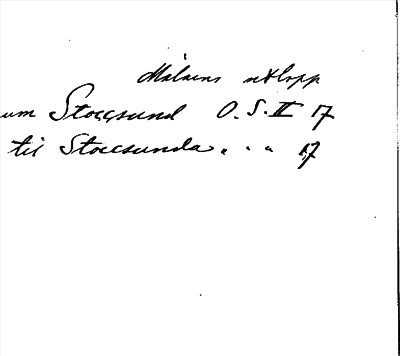 Mälarens utlopp
um Stocsund O. S. II 17
til Stocsunda „ „ „ 17